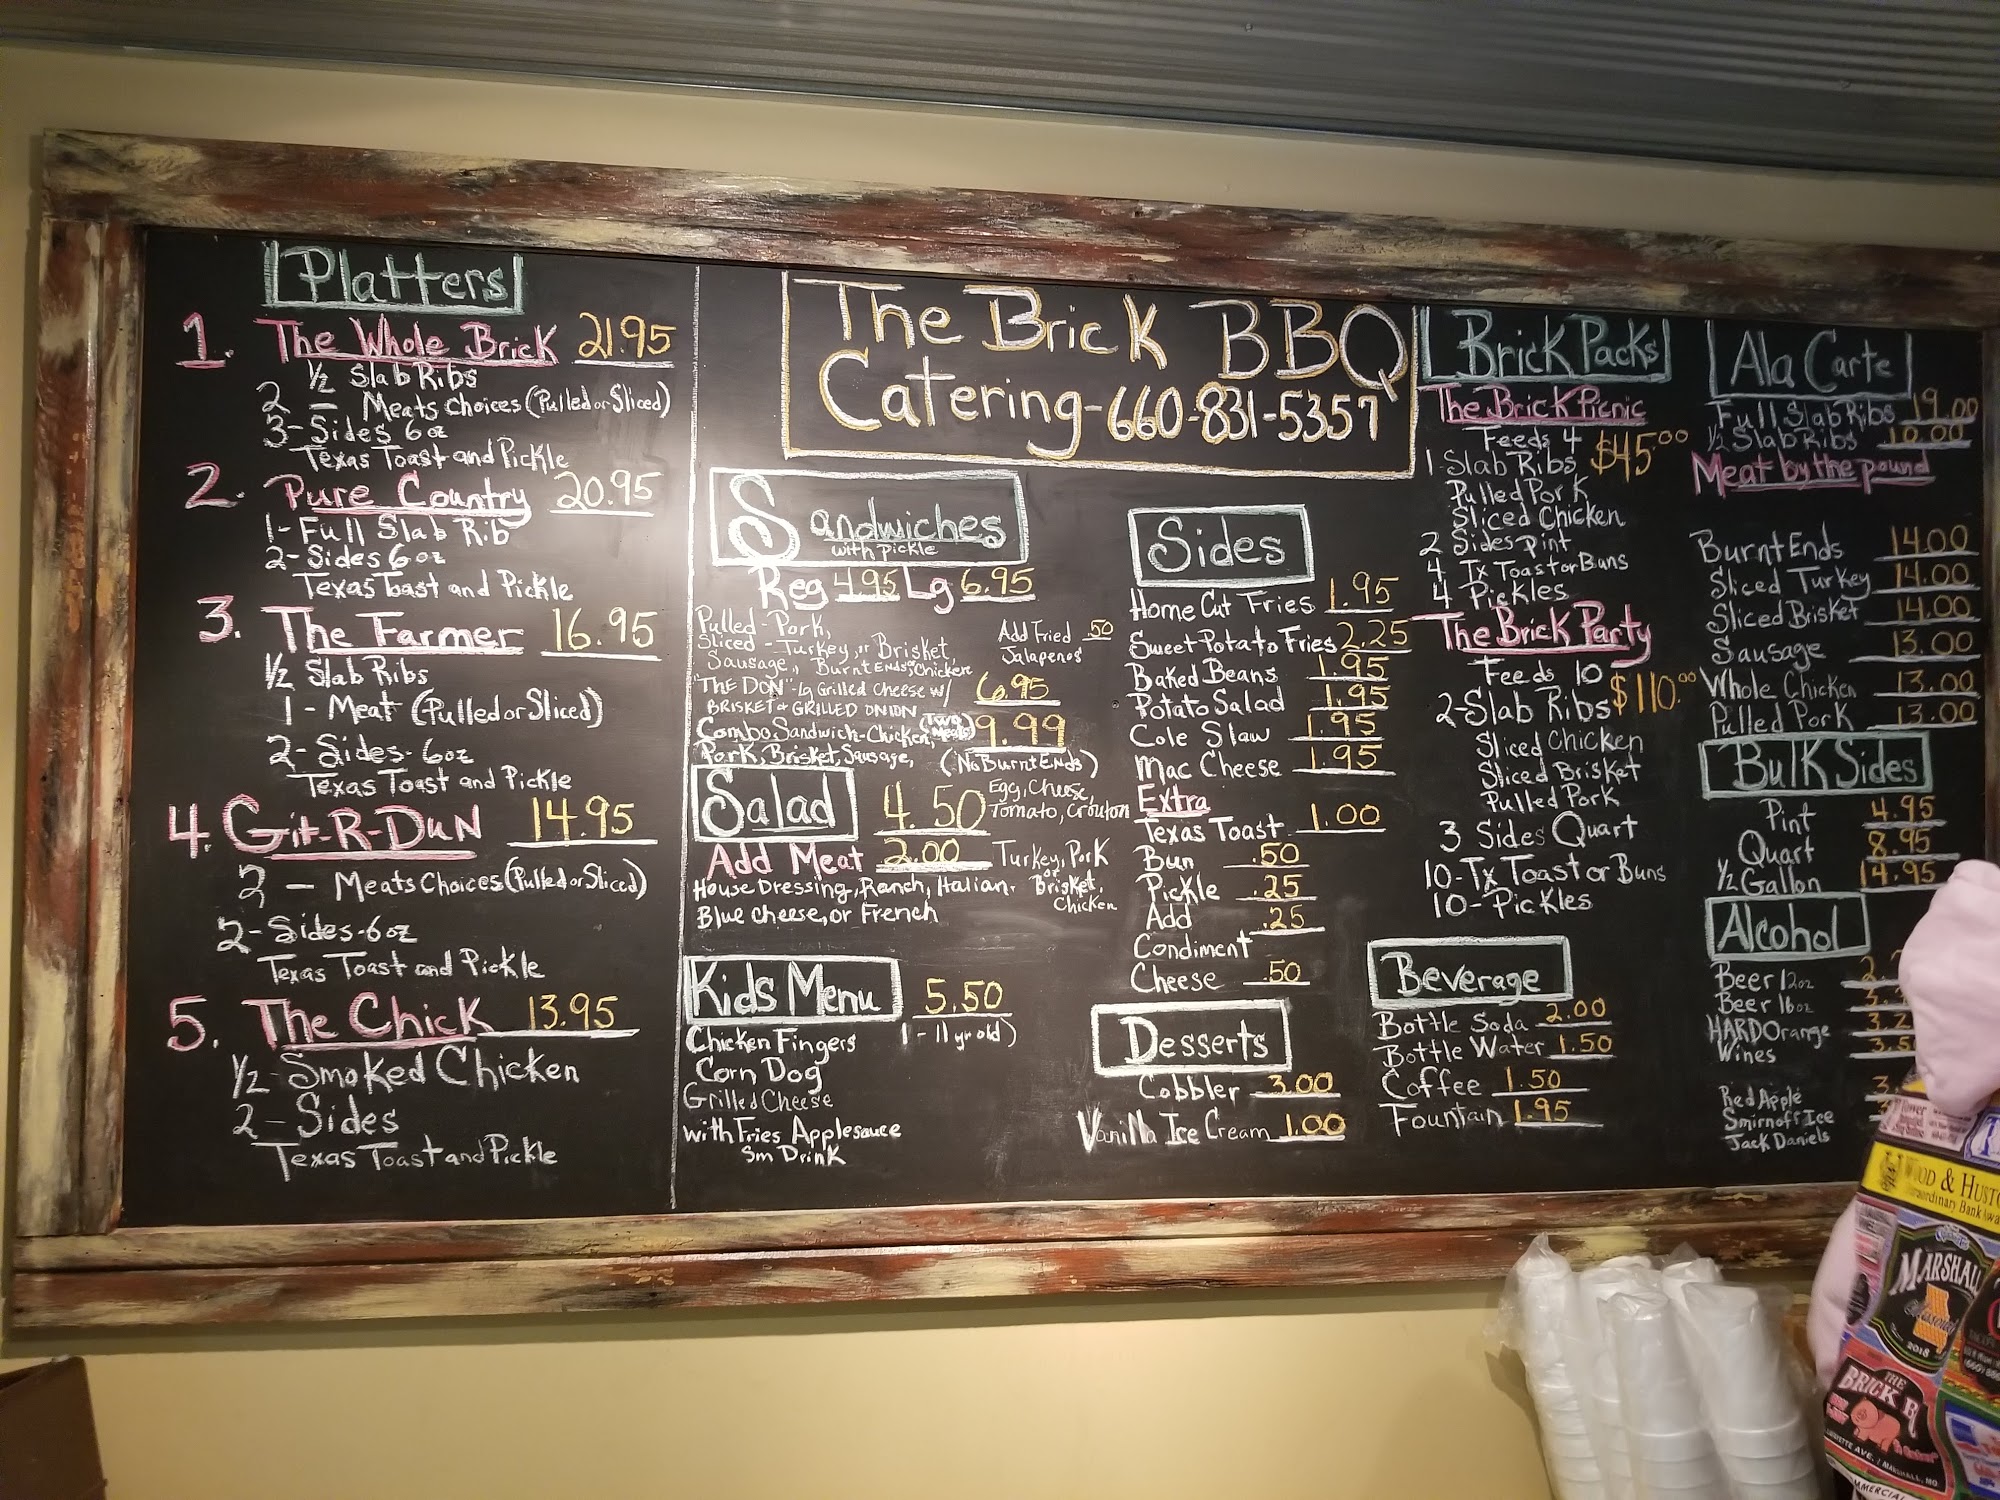 Platters
1. The Whole Brick 21.95
½ Slab Ribs
2 - Meats Choices (Pulled or Sliced)
3-Sides 6oz
Texas Toast and Pickle
2. Pure Country 20.95
1-Full Slab Rib
2-Sides 6oz
Texas Toast and Pickle
3. The Farmer 16.95
½ Slab Ribs
1 - Meat (Pulled or Sliced)
2-Sides-6oz
Texas Toast and Pickle
4. Git-R-DuN 14.95
2 - Meats Choices (Pulled or Sliced)
2-Sides-6oz
Texas Toast and Pickle
5. The Chick 13.95
½ Smoked Chicken
2-Sides
Texas Toast and Pickle
The Brick BBQ
Catering-660-831-5357
Sandwiches
with pickle
Reg 4.95 Lg 6.95
Pulled-Pork,
Sliced-Turkey, or Brisket,
Sausage, Burnt Ends, or Chicken
Add Fried .50
Jalapenos
"THE DON"-Lg Grilled Cheese w/ 6.95
BRISKET & GRILLED ONION
Combo Sandwich-Chicken, (Two Meats) 9.99
Pork, Brisket, Sausage, (No Burnt Ends)
Salad 4.50 Egg, Cheese,
Tomato, Crouton
Add Meat 2.00 Turkey, Pork
or Brisket,
Chicken
House Dressing, Ranch, Italian.
Blue Cheese, or French
Kids Menu 5.50
1-11 yr old)
Chicken Fingers
Corn Dog
Grilled Cheese
with Fries Applesauce
Sm Drink
Sides
Home Cut Fries 1.95
Sweet Potato Fries 2.25
Baked Beans 1.95
Potato Salad 1.95
Cole Slaw 1.95
Mac Cheese 1.95
Extra
Texas Toast 1.00
Bun .50
Pickle .25
Add .25
Condiment
Cheese .50
Desserts
Cobbler 3.00
Vanilla Ice Cream 1.00
Brick Packs
The Brick Picnic
Feeds 4 $45.00
1-Slab Ribs
Pulled Pork
Sliced Chicken
2 Sides pint
4 Tx Toast or Buns
4 Pickles
The Brick Party
Feeds 10 $110.00
2-Slab Ribs
Sliced Chicken
Sliced Brisket
Pulled Pork
3 Sides Quart
10-Tx Toast or Buns
10-Pickles
Beverage
Bottle Soda 2.00
Bottle Water 1.50
Coffee 1.50
Fountain 1.95
Ala Carte
Full Slab Ribs 19.00
½ Slab Ribs 10.00
Meat by the pound
Burnt Ends 14.00
Sliced Turkey 14.00
Sliced Brisket 14.00
Sausage 13.00
Whole Chicken 13.00
Pulled Pork 13.00
Bulk Sides
Pint 4.95
Quart 8.95
½ Gallon 14.95
Alcohol
Beer 12oz
Beer 16oz
HARD Orange
Wines
Red Apple
Smirnoff Ice
Jack Daniels
MARSHAL
2018
THE
BRICK B
MARSHALL, MO